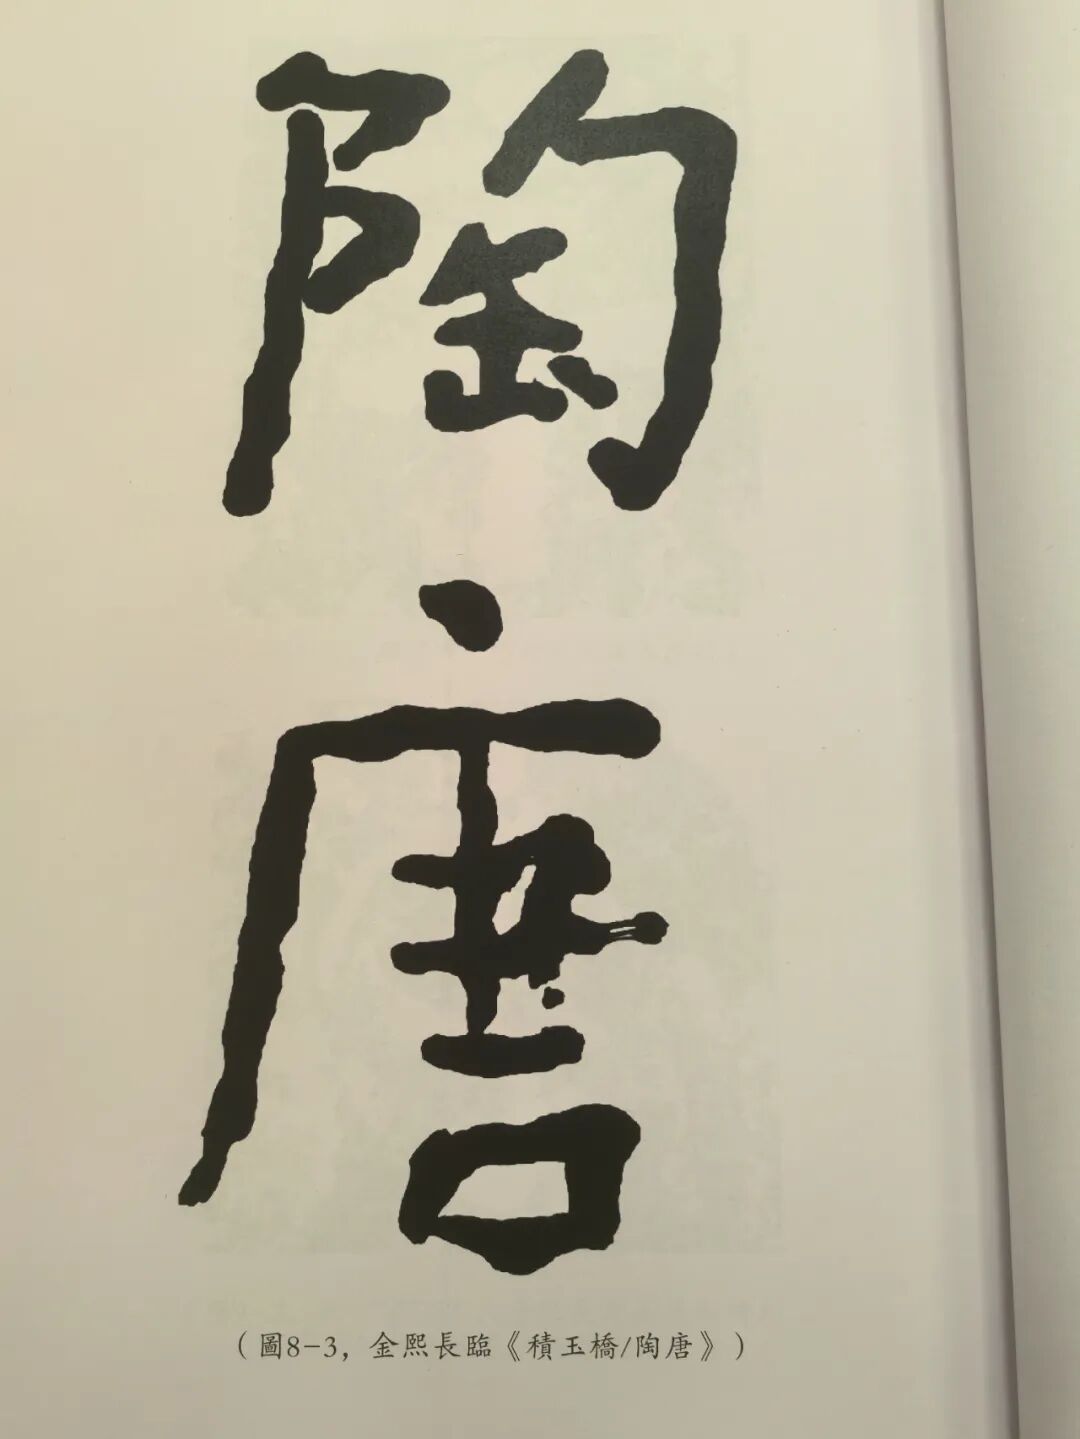 陶
唐
（圖8-3，金熙長臨《積玉橋/陶唐》）